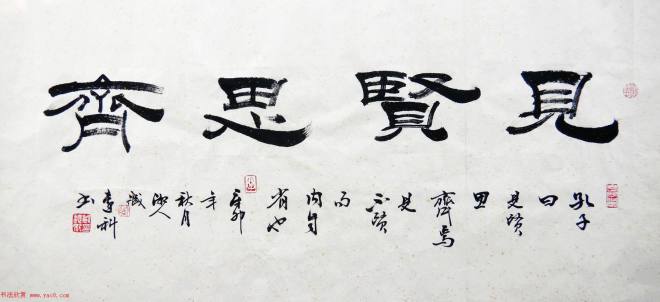 見賢思齊
孔子
曰
見賢
思
齊焉
見
不賢
而
内自
省也
辛卯
年
秋月
李科
书
书法欣赏 www.yac8.com